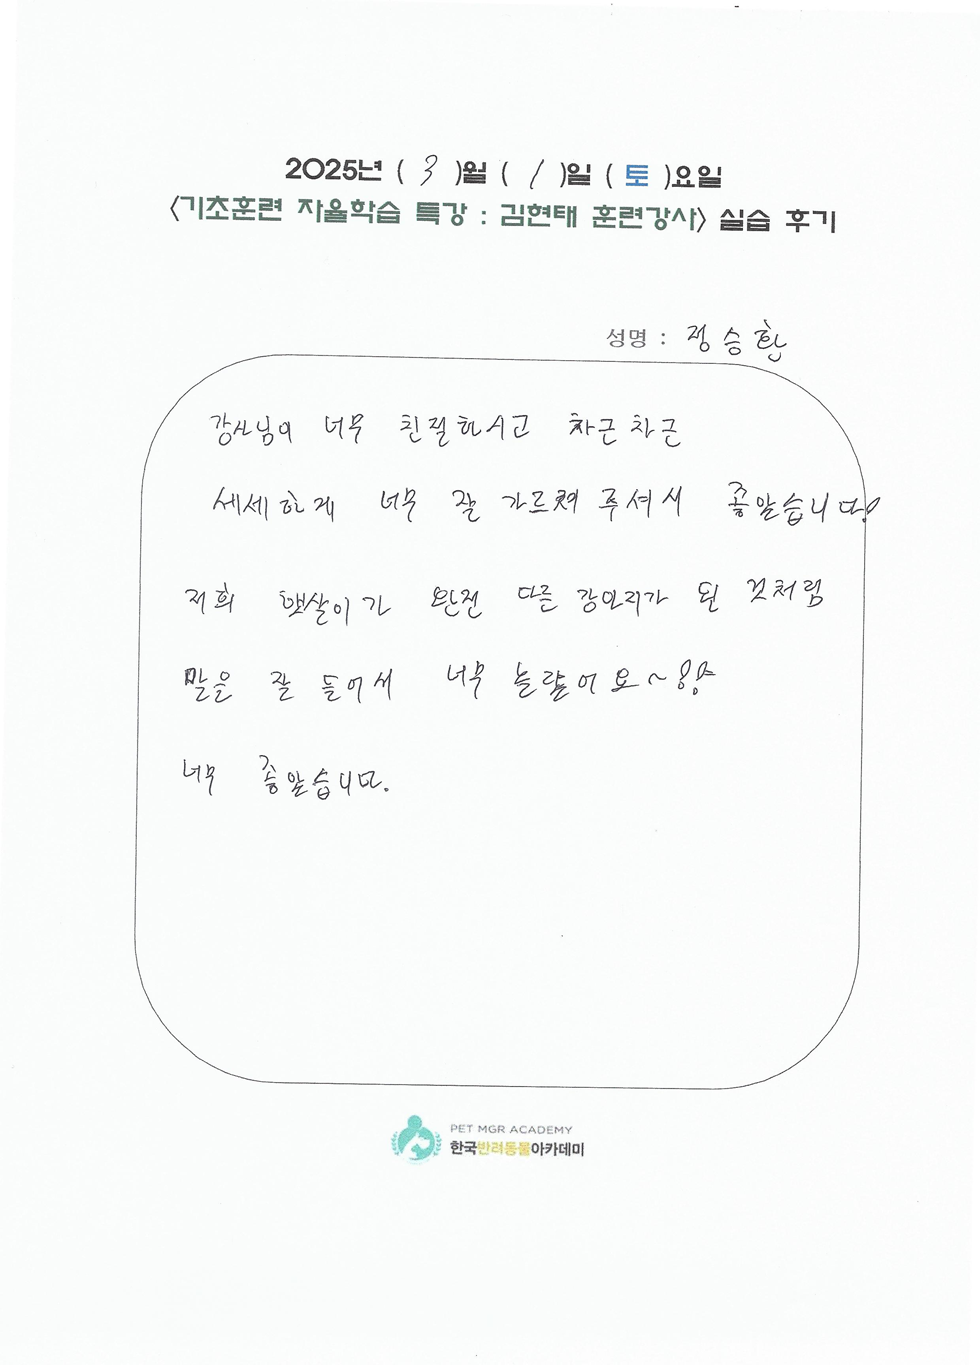 2025년 ( 3 )월 ( 1 )일 ( 토 )요일
<기초훈련 자율학습 특강 : 김현태 훈련강사> 실습 후기
성명 : 정승환
강사님이 너무 친절하시고 차근차근
세세하게 너무 잘 가르쳐 주셔서 좋았습니다!
저희 햇살이가 완전 다른 강아지가 된 것처럼
말을 잘 들어서 너무 놀랐어요~!!
너무 좋았습니다.
PET MGR ACADEMY
한국반려동물아카데미